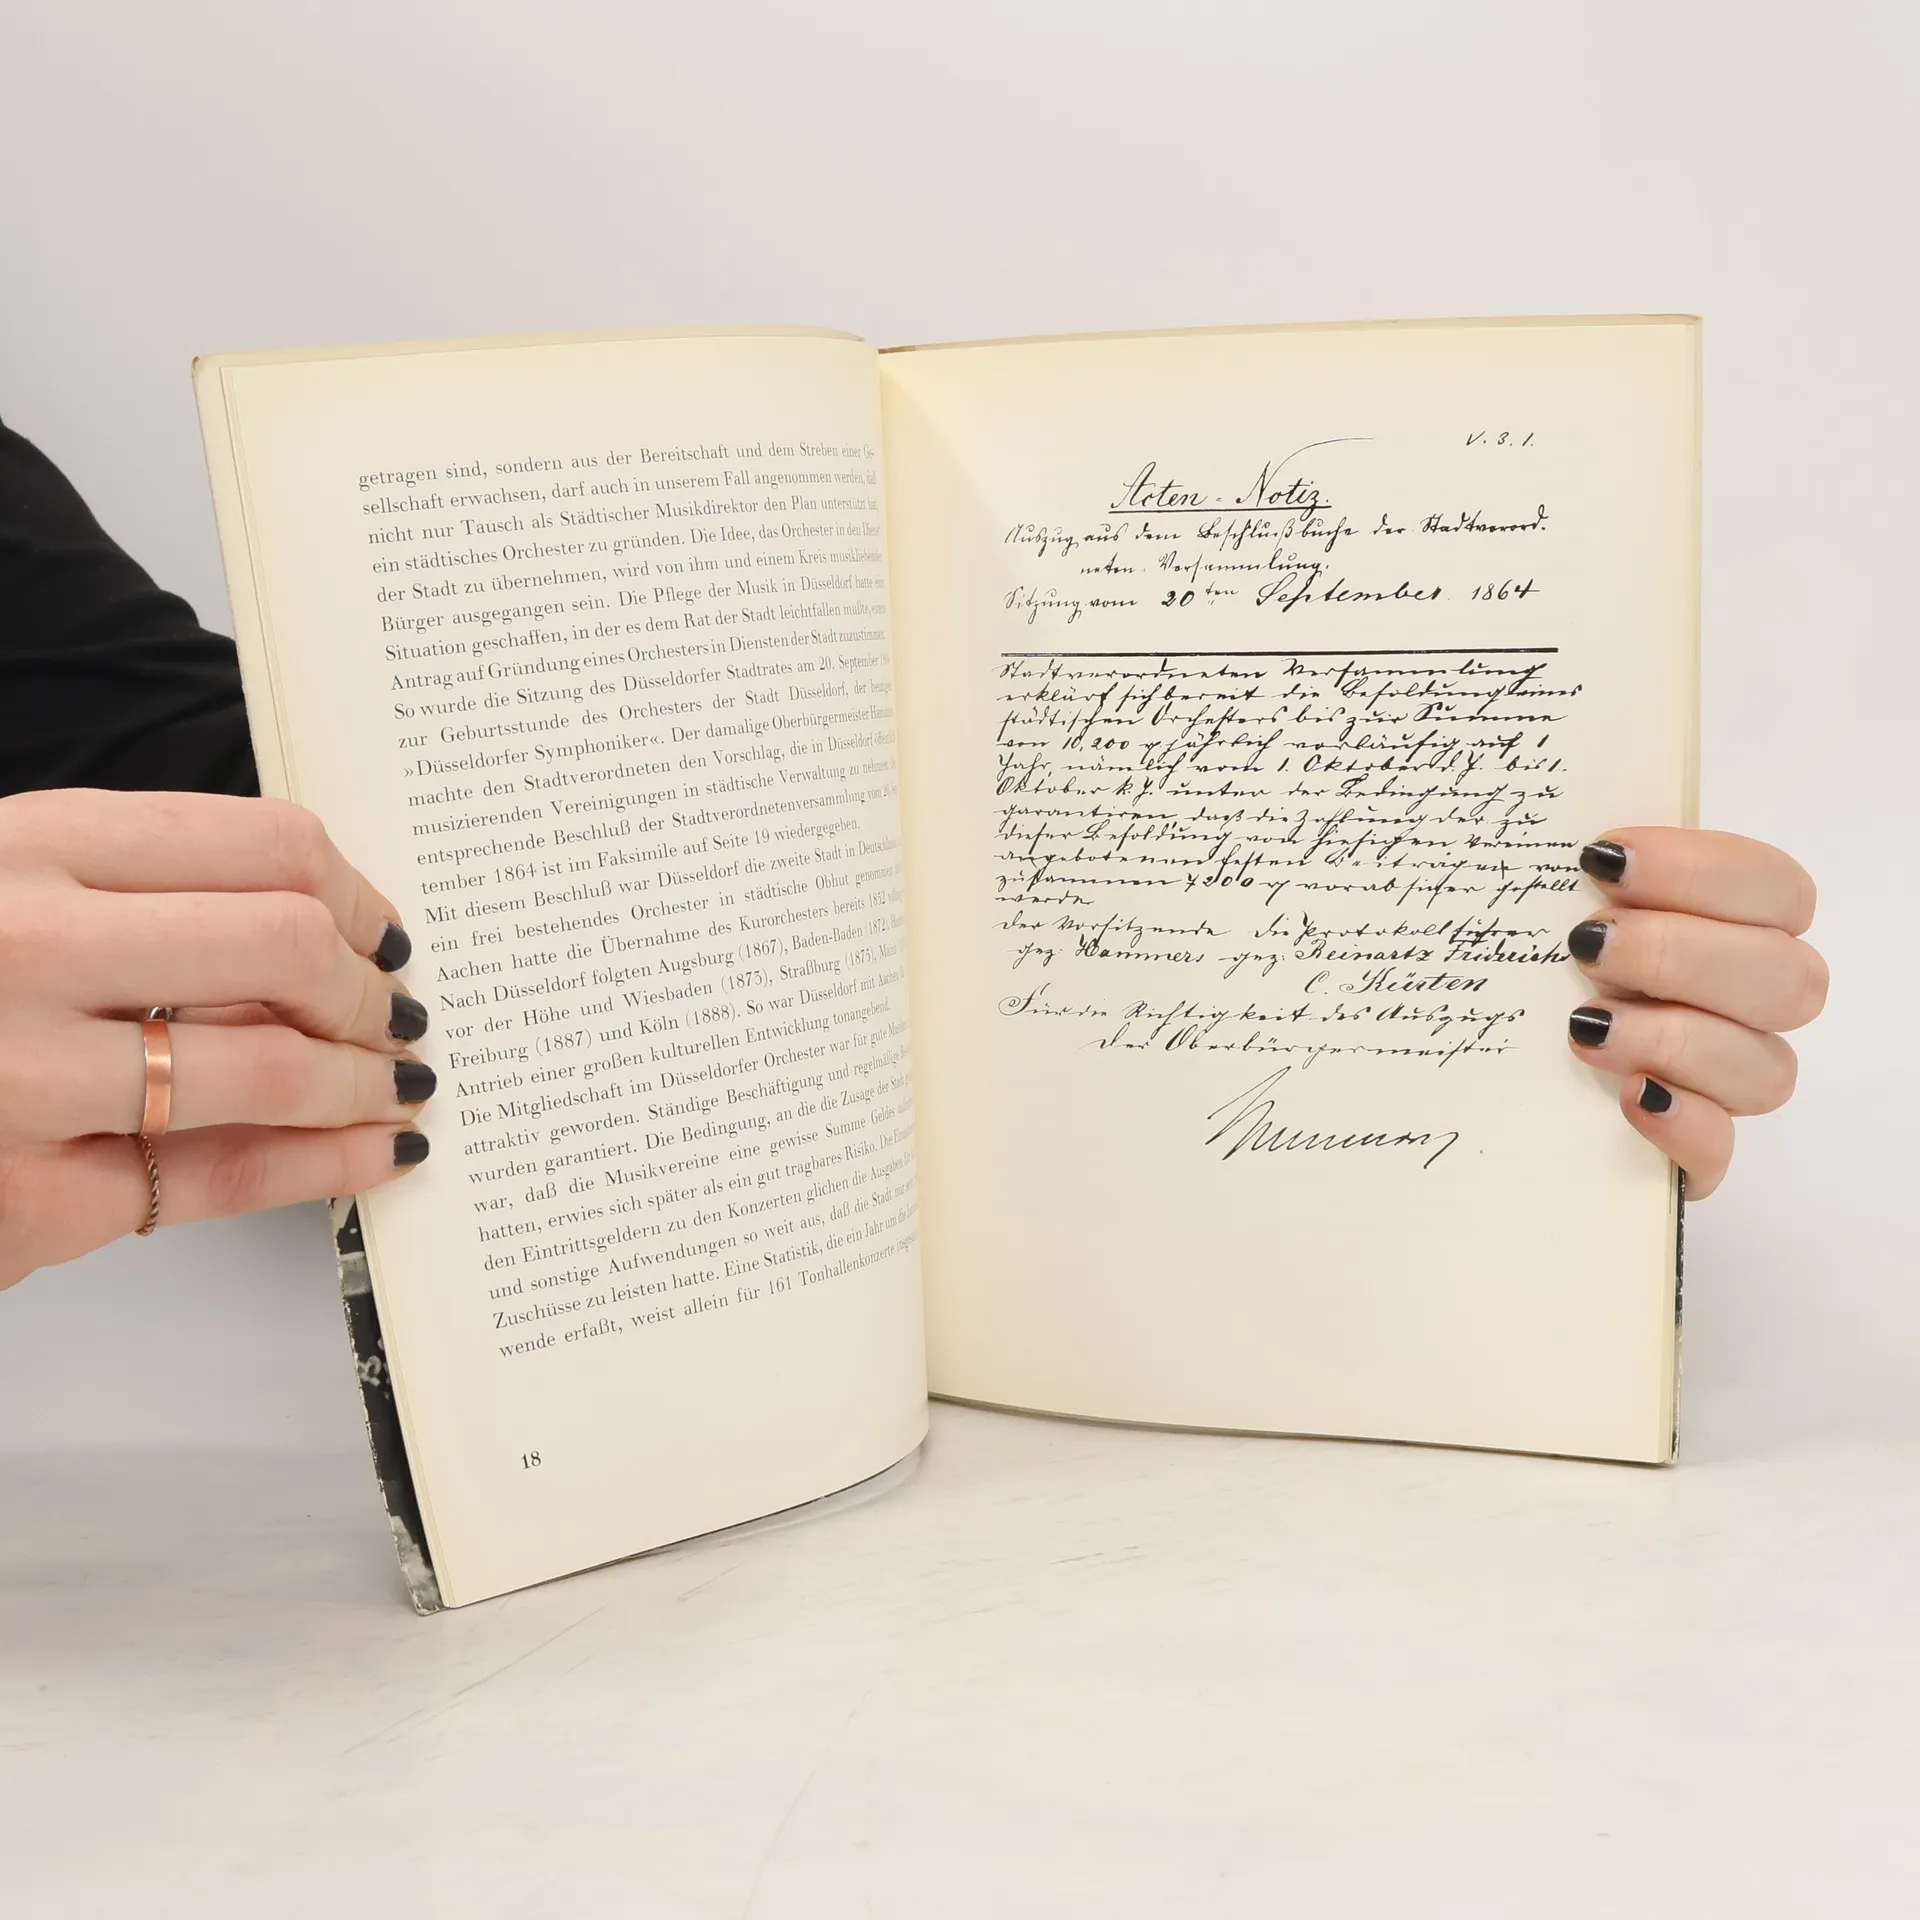 getragen sind, sondern aus der Bereitschaft und dem Streben einer Ge-
sellschaft erwachsen, darf auch in unserem Fall angenommen werden, daß
nicht nur Tausch als Städtischer Musikdirektor den Plan unterstützt hat,
ein städtisches Orchester zu gründen. Die Idee, das Orchester in den Dienst
der Stadt zu übernehmen, wird von ihm und einem Kreis musikliebender
Bürger ausgegangen sein. Die Pflege der Musik in Düsseldorf hatte eine
Situation geschaffen, in der es dem Rat der Stadt leichtfallen mußte, einem
Antrag auf Gründung eines Orchesters in Diensten der Stadt zuzustimmen.
So wurde die Sitzung des Düsseldorfer Stadtrates am 20. September
zur Geburtsstunde des Orchesters der Stadt Düsseldorf, der heutigen
»Düsseldorfer Symphoniker«. Der damalige Oberbürgermeister Hammers
machte den Stadtverordneten den Vorschlag, die in Düsseldorf öffentlich
musizierenden Vereinigungen in städtische Verwaltung zu nehmen. Der
entsprechende Beschluß der Stadtverordnetenversammlung vom 20. Sep-
tember 1864 ist im Faksimile auf Seite 19 wiedergegeben.
Mit diesem Beschluß war Düsseldorf die zweite Stadt in Deutschland,
ein frei bestehendes Orchester in städtische Obhut genommen
Aachen hatte die Übernahme des Kurorchesters bereits 1852
Nach Düsseldorf folgten Augsburg (1867), Baden-Baden (1872),
vor der Höhe und Wiesbaden (1873), Straßburg (1875), Mainz
Freiburg (1887) und Köln (1888). So war Düsseldorf mit Aachen
Antrieb einer großen kulturellen Entwicklung tonangebend.
Die Mitgliedschaft im Düsseldorfer Orchester war für gute Musiker
attraktiv geworden. Ständige Beschäftigung und regelmäßige
wurden garantiert. Die Bedingung, an die die Zusage der Stadt
war, daß die Musikvereine eine gewisse Summe Geldes
hatten, erwies sich später als ein gut tragbares Risiko. Die
den Eintrittsgeldern zu den Konzerten glichen die Ausgaben für
und sonstige Aufwendungen so weit aus, daß die Stadt nur
Zuschüsse zu leisten hatte. Eine Statistik, die ein Jahr um die
wende erfaßt, weist allein für 161 Tonhallenkonzerte
18
V. 3. 1.
Acten-Notiz.
Auszug aus dem Beschlußbuche der Stadtverord-
neten-Versammlung.
Sitzung vom 20ten September 1864
Stadtverordneten Versammlung
erklärt sich bereit die Besoldung eines
städtischen Orchesters bis zur Summe
von 10,200 jährlich vorläufig auf 1
Jahr, nämlich vom 1. Oktober d. J. bis 1.
Oktober k. J. unter der Bedingung zu
garantiren, daß die Zahlung der zu
dieser Besoldung von hiesigen Vereinen
angebotenen festen Beiträgen von
zusammen 7200 vorab sicher gestellt
werde
Der Vorsitzende Die Protokollführer
gez: Hammers gez: Reinartz Friderichs
C. Kürten
Für die Richtigkeit des Auszugs
Der Oberbürgermeister